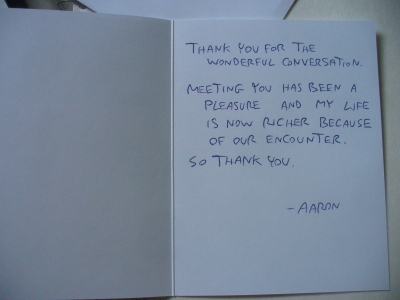 THANK YOU FOR THE
WONDERFUL CONVERSATION.
MEETING YOU HAS BEEN A
PLEASURE AND MY LIFE
IS NOW RICHER BECAUSE
OF OUR ENCOUNTER.
SO THANK YOU.
-AARON